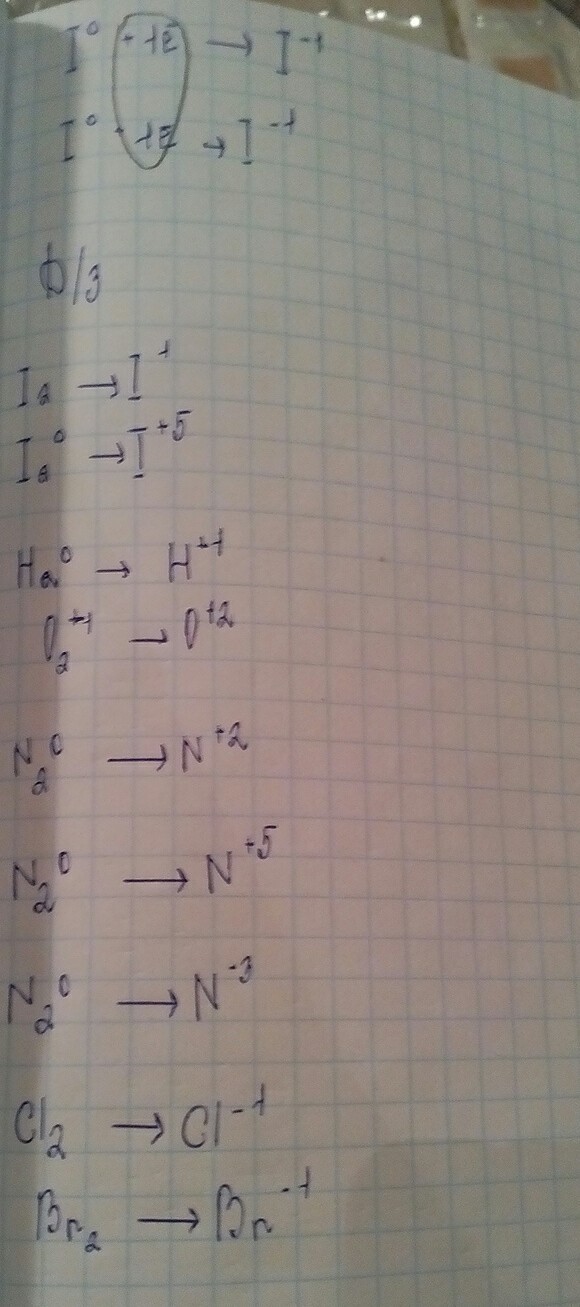 I⁰ +1ē → I⁻¹
I⁰ +1ē → I⁻¹
Д/з
I₂ → I⁺
I₂⁰ → I⁺⁵
H₂⁰ → H⁺¹
O₂⁺¹ → O⁺²
N₂⁰ → N⁺²
N₂⁰ → N⁺⁵
N₂⁰ → N⁻³
Cl₂ → Cl⁻¹
Br₂ → Br⁻¹